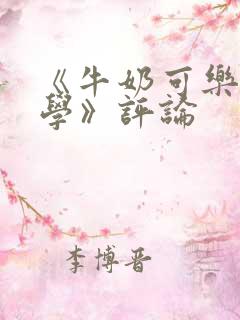 《牛奶可樂
學》評論
李博晋